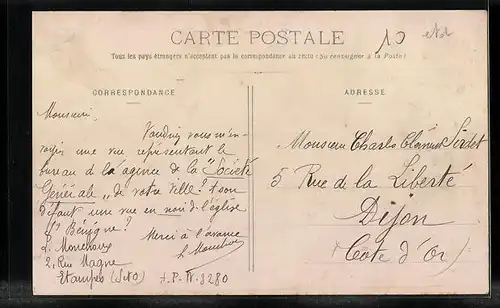 CARTE POSTALE
10
Tous les pays étrangers n'acceptent pas la correspondance au recto (Se renseigner à la Poste)
CORRESPONDANCE
Monsieur,
Voudriez vous m'en-
voyer une vue représentant le
bureau de l'agence de la "Société
Générale" de votre ville? à son
défaut une vue en noir de l'église
St Bénigne?
Merci à l'avance
2, Rue Magne
Etampes (S et O)
ADRESSE
Monsieur Charles Clément
5 Rue de la Liberté
Dijon
(Côte d'Or)